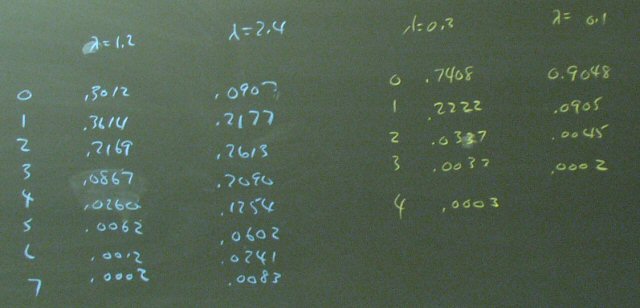 λ=1.2 λ=2.4 λ=0.3 λ= 0.1
0 .3012 .0907 0 .7408 0.9048
1 .3614 .2177 1 .2222 .0905
2 .2169 .2613 2 .0337 .0045
3 .0867 .2090 3 .0033 .0002
4 .0260 .1254 4 .0003
5 .0062 .0602
6 .0012 .0241
7 .0002 .0083